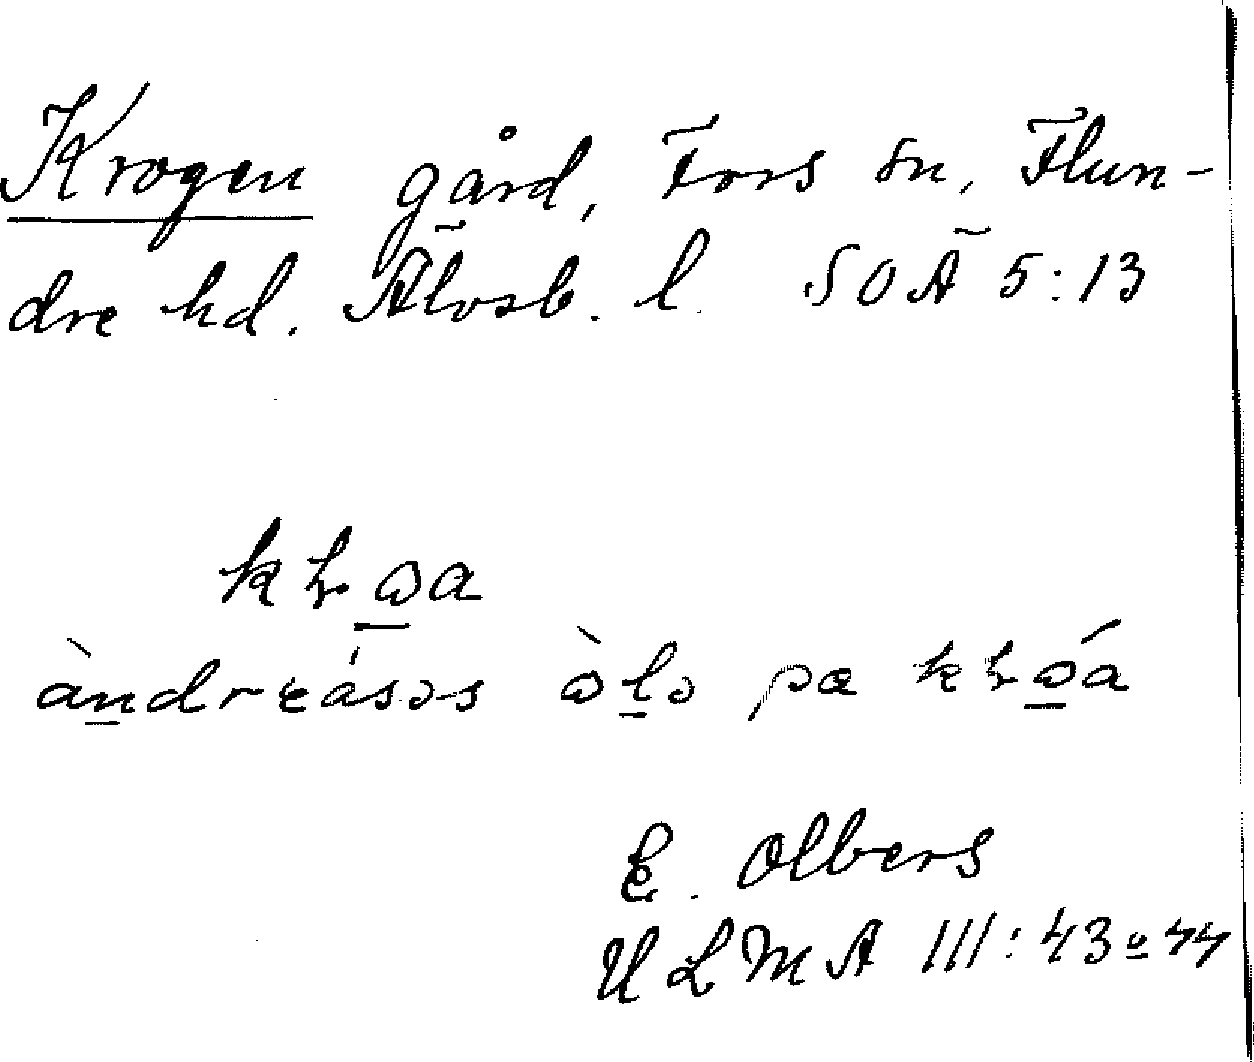 Krogen gård, Fors sn, Flun-
dre hd. Älvsb. l. SOÄ 5:13
kꞃɷa
àndreásəs ɷ̀lə pɑ kꞃɷá
E. Olbers
ULMA 111:43 o 44